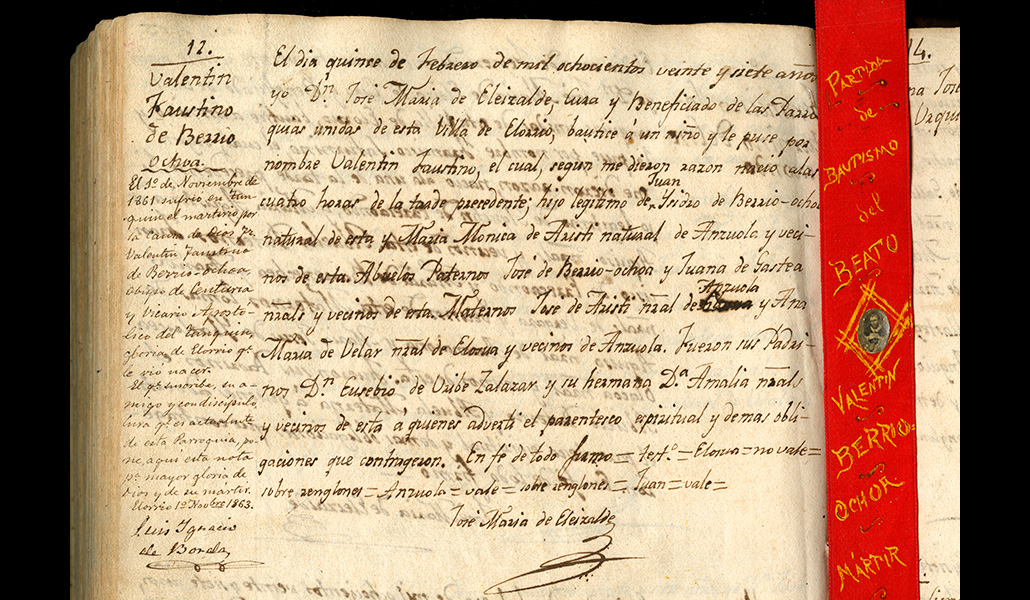 12.
Valentin
Faustino
de Berrio
Ochoa.
El 1º de Noviembre de
1861 sufrió en Tun-
quin el martirio por
la causa de Dios Fr.
Valentin Faustino
de Berrio-ochoa,
Obispo de Centuria
y Vicario Aposto-
lico del Tunquin,
gloria de Elorrio qe.
le vió nacer.
El qe. suscribe, su a-
migo y condiscipulo,
Cura qe. es actualmente
de esta Parroquia, po-
ne aqui esta nota
pa. mayor gloria de
Dios y de su martir.
Elorrio 1º Novbre 1863.
Luis Ignacio
de Borda
El dia quinse de Febrero de mil ochocientos veinte y siete años
yo Dn. José Maria de Eleizalde, Cura y Beneficiado de las Parro
quias unidas de esta Villa de Elorrio, bautice á un niño y le puse por
nombre Valentin Faustino, el cual, segun me dieron razon nació alas
cuatro horas de la tarde precedente; hijo legitimo de Juan Isidro de Berrio-ochoa
natural de esta y Maria Monica de Aristi natural de Anzuola, y veci-
nos de esta. Abuelos Paternos José de Berrio-ochoa y Juana de Gastea
nrals y vecinos de esta Maternos Jose de Aristi nral de Anzuola y Ana
Maria de Velar nral de Elosua y vecinos de Anzuola. Fueron sus Padri-
nos Dn. Eusebio de Uribe Zalazar y su hermana Da. Amalia nrals
y vecinos de esta á quienes adverti el parentesco espiritual y demas obli-
gaciones que contrageron. En fé de todo firmo = test.º = Elosua = no vale =
sobre renglones = Anzuola = vale = sobre renglones = Juan = vale =
José Maria de Eleizalde
PARTIDA
de
BAUTISMO
del
BEATO
VALENTIN
BERRIO
OCHOA
MÁRTIR
14.